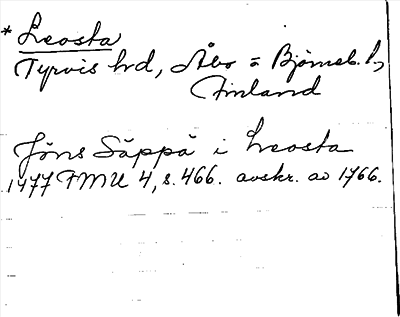 * Leosta
Tyrvis hd, Åbo o Björneb. l,
Finland
Jöns Säppä i Leosta
1477 FMU 4, s. 466. avskr. av 1766.